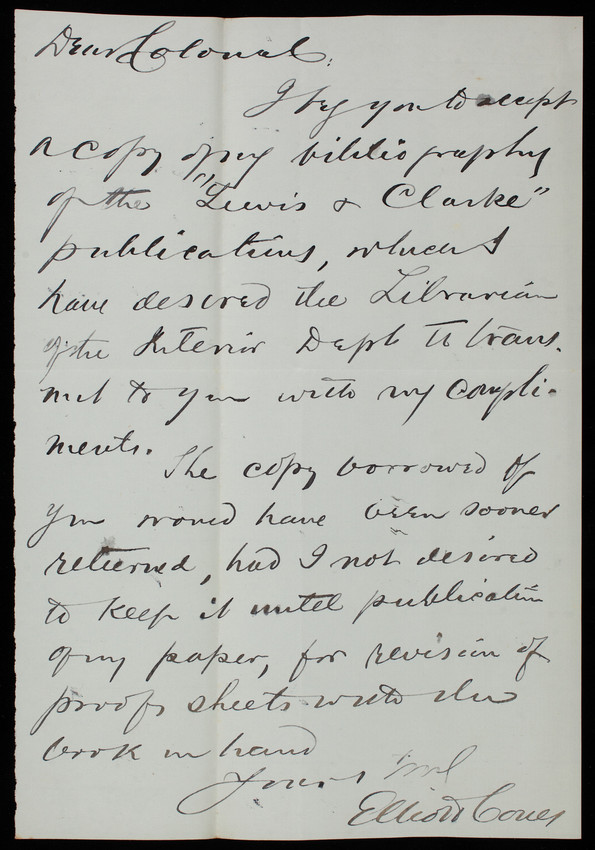 Dear Colonel:
I beg you to accept
a copy of my bibliography
of the "Lewis & Clarke"
publications, which I
have desired the Librarian
of the Interior Dept to trans-
mit to you with my compli-
ments.
The copy borrowed of
you would have been sooner
returned, had I not desired
to keep it until publication
of my paper, for revision of
proof sheets with the
book in hand
Yours
Elliott Coues